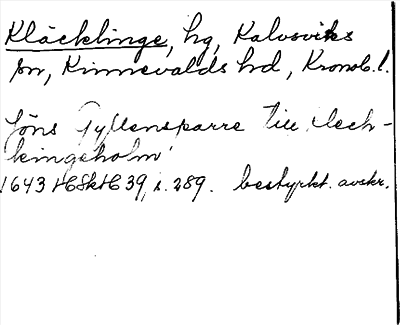 Kläcklinge, hg, Kalvsviks
sn, Kinnevalds hd, Kronob. l.
Jöns Gyllensparre till Kleck-
lingeholm
1643 HSH 39, s. 289. bestyrkt avskr.